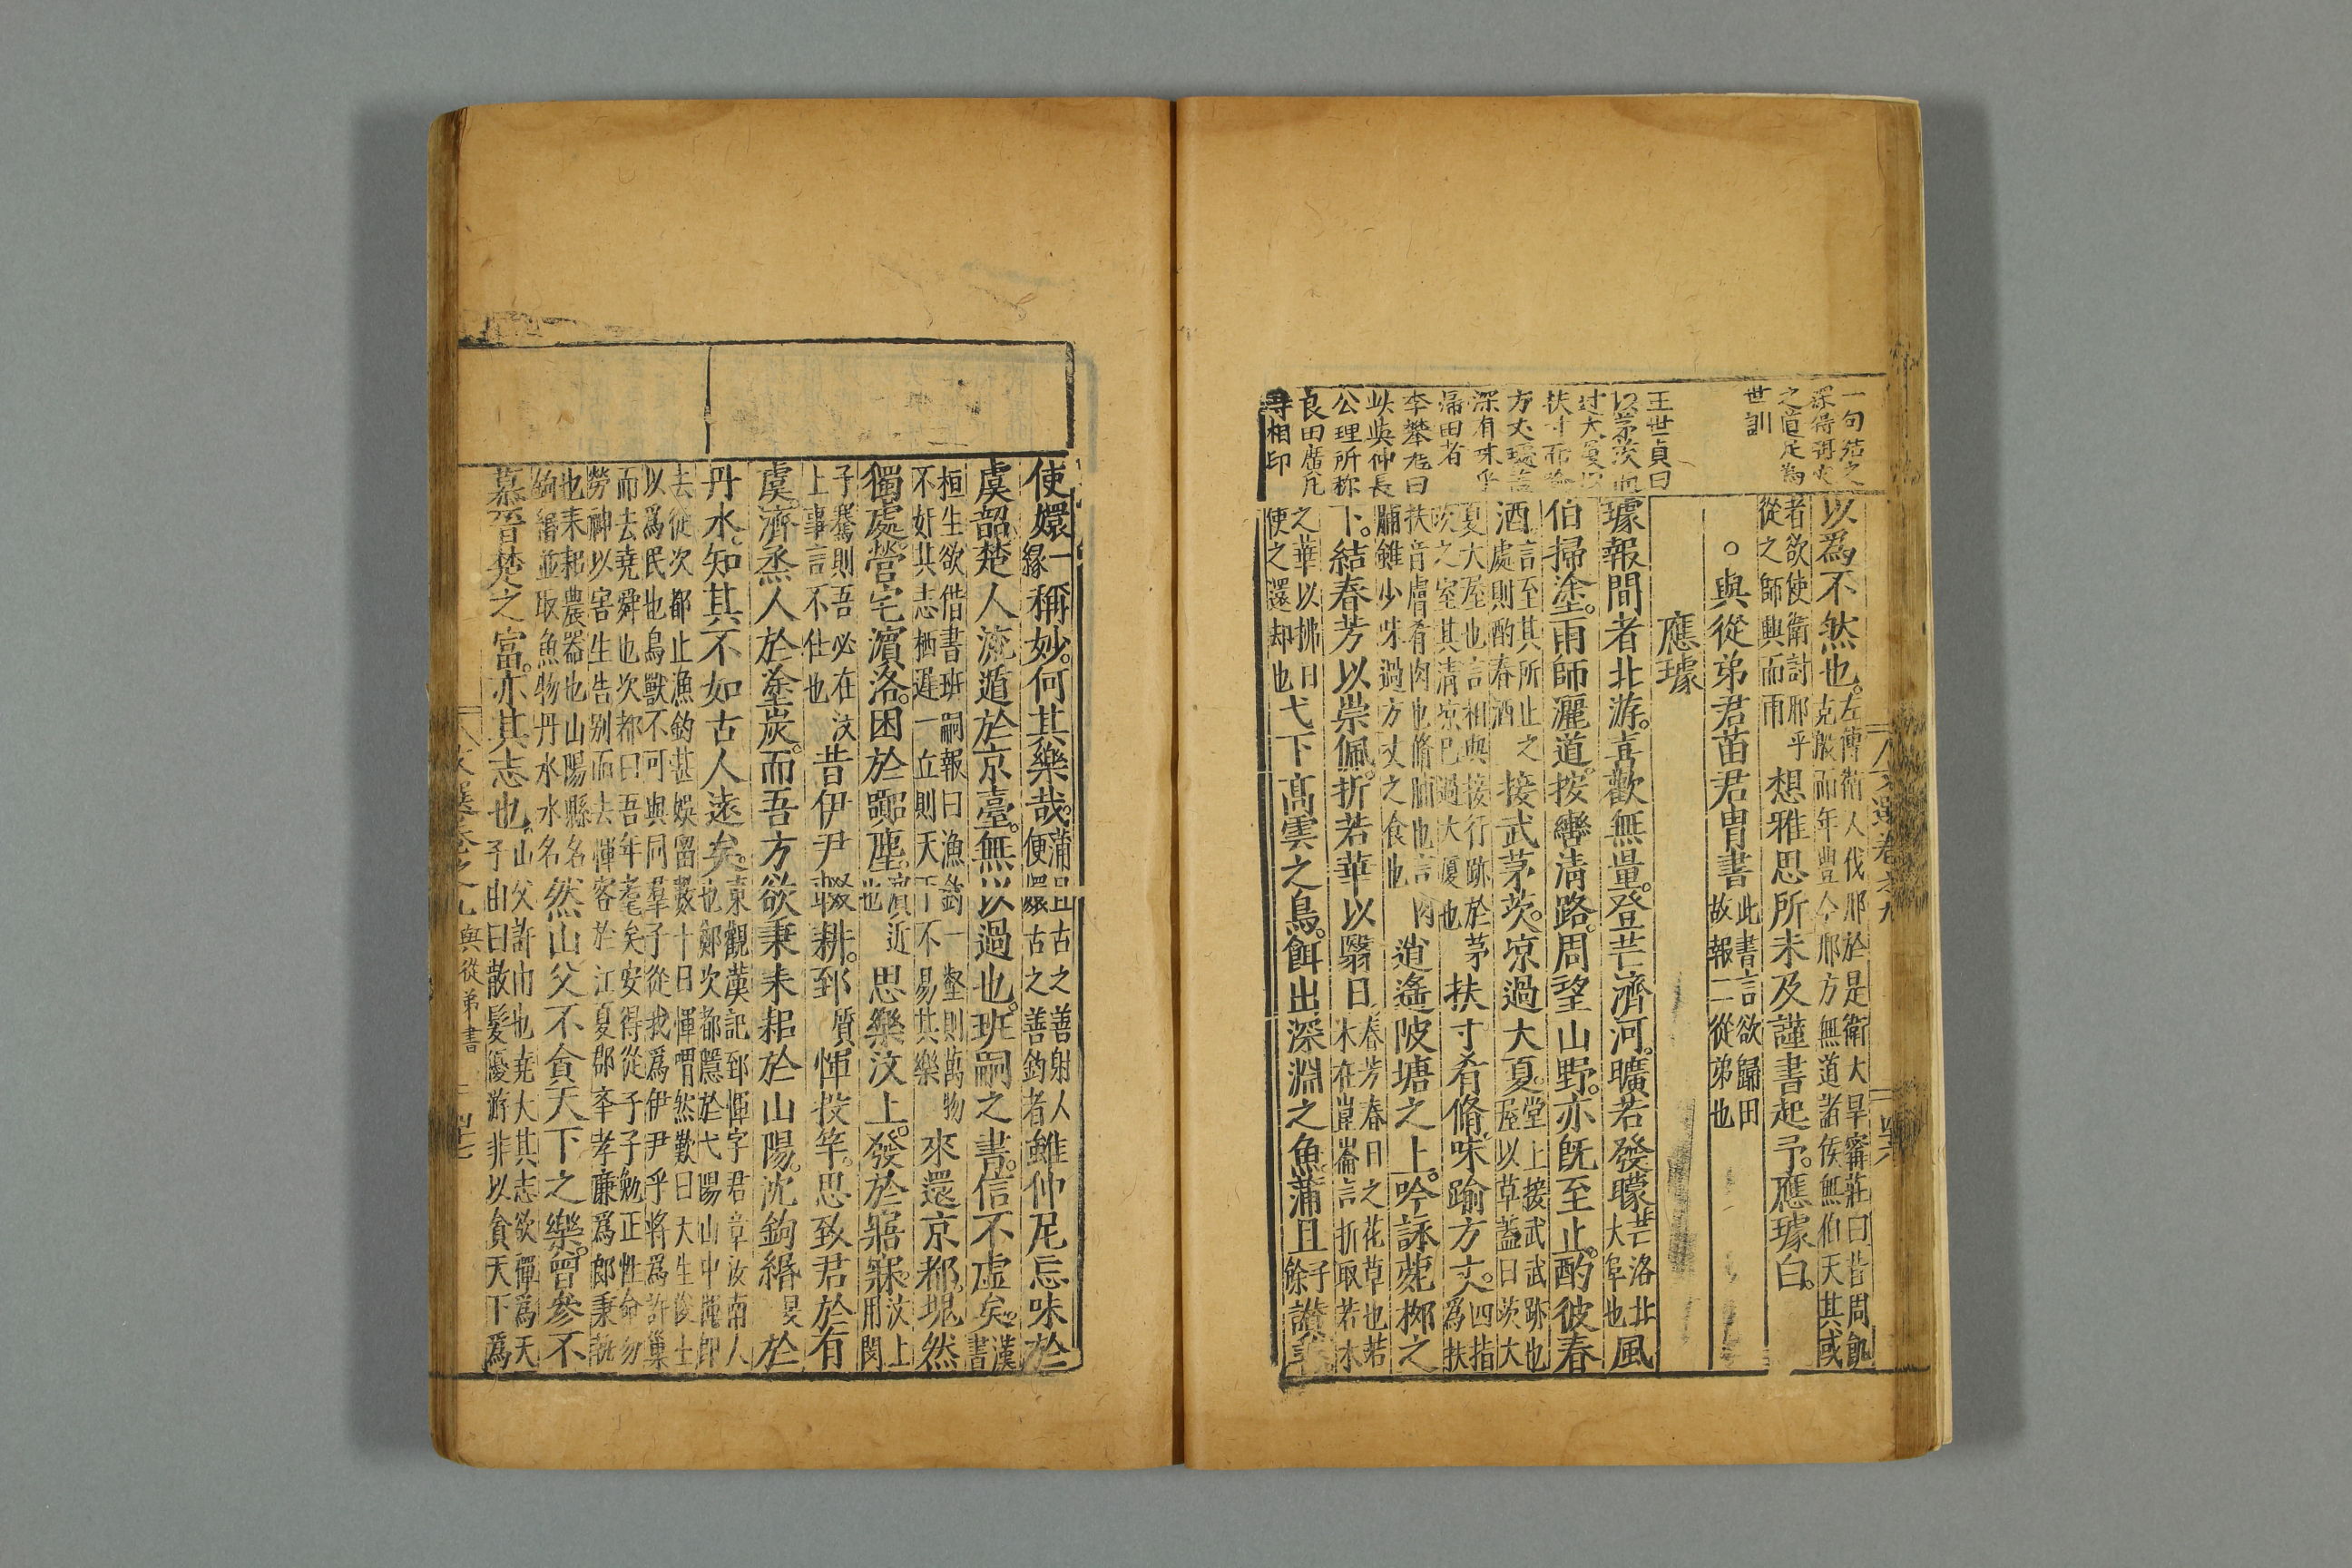 一句結之
深得諷喻
之道足為
世訓
王世貞曰
以茅茨而
过大夏以
扶寸而逾
方丈璩蓋
深有味乎
歸田者
李攀龙曰
此與仲長
公理所称
良田廣尻
等相印
以為不然也。左傳衛人伐邢於是衛大旱甯莊曰昔周飢
克殷而年豊今邢方無道諸侯無伯天其或
者欲使衛討邢乎
從之師興而雨
想雅思所未及謹書起予。應璩白。
○與從弟君苗君冑書此書言欲歸田
故報二從弟也
應璩
璩報間者北游。喜歡無量。登芒濟河。曠若發矇芒洛北
大阜也
風
伯掃塗。雨師灑道。按轡清路。周望山野。亦既至止。酌彼春
酒言至其所止之
處則酌春酒
接武茅茨。凉過大夏。堂上接武武跡也
屋以草蓋曰茨大
夏大屋也言相與接行跡於茅
茨之室其清凉已過大廈也
扶寸肴脩。味踰方丈。四指
為扶
扶音膚肴肉也脩脯也言肉
脯雖少味過方丈之食也
逍遙陂塘之上。吟詠菀柳之
下。結春芳以崇佩。折若華以翳日春芳春日之花草也若
木在崑崙言折取若木
之華以拂日
使之還却也
弋下高雲之鳥。餌出深淵之魚。蒲且子
餘
讚善
使嬛一
緣
稱妙。何其樂哉。蒲且古之善射人
便嬛古之善釣者
雖仲尼忘味於
虞韶。楚人流遁於京臺。無以過也。班嗣之書。信不虛矣。漢
書
桓生欲借書班嗣報曰漁釣一壑則萬物
不奸其志栖遲一丘則天下不易其樂
來還京都。塊然
獨處。營宅濱洛。困於囂塵。濱近
也
思樂汶上。發於寤寐。汶上
用閔
子騫則吾必在汶
上事言不仕也
昔伊尹輟耕。郅
質
惲投竿。思致君於有
虞。濟烝人於塗炭。而吾方欲秉耒耜於山陽。沈鉤緡
旻
於
丹水。知其不如古人遠矣。東觀漢記郅惲字君章汝南人
也鄭次都隱於弋陽山中惲即
去從次都止漁釣甚娛留數十日惲喟然歎曰天生俊士
以為民也鳥獸不可與同羣子從我為伊尹乎将為許巢
而去堯舜也次都曰吾年耄矣安得從子子勉正性命勿
勞神以害生告别而去惲客於江夏郡举孝廉為郎秉耒
也耒耜農器也山陽縣名
鉤緡並取魚物丹水水名
然山父不貪天下之樂。曾參不
慕晉楚之富。亦其志也。山父許由也堯大其志欲禪為天
子由曰散髮優游非以貪天下為
文選卷之九
四十六
文選卷之九
與從弟書
四十七